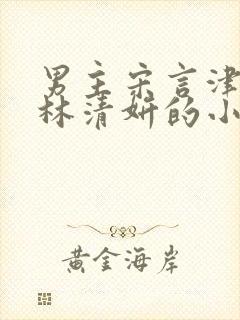 男主宋言津
林清妍的小
黄金海岸